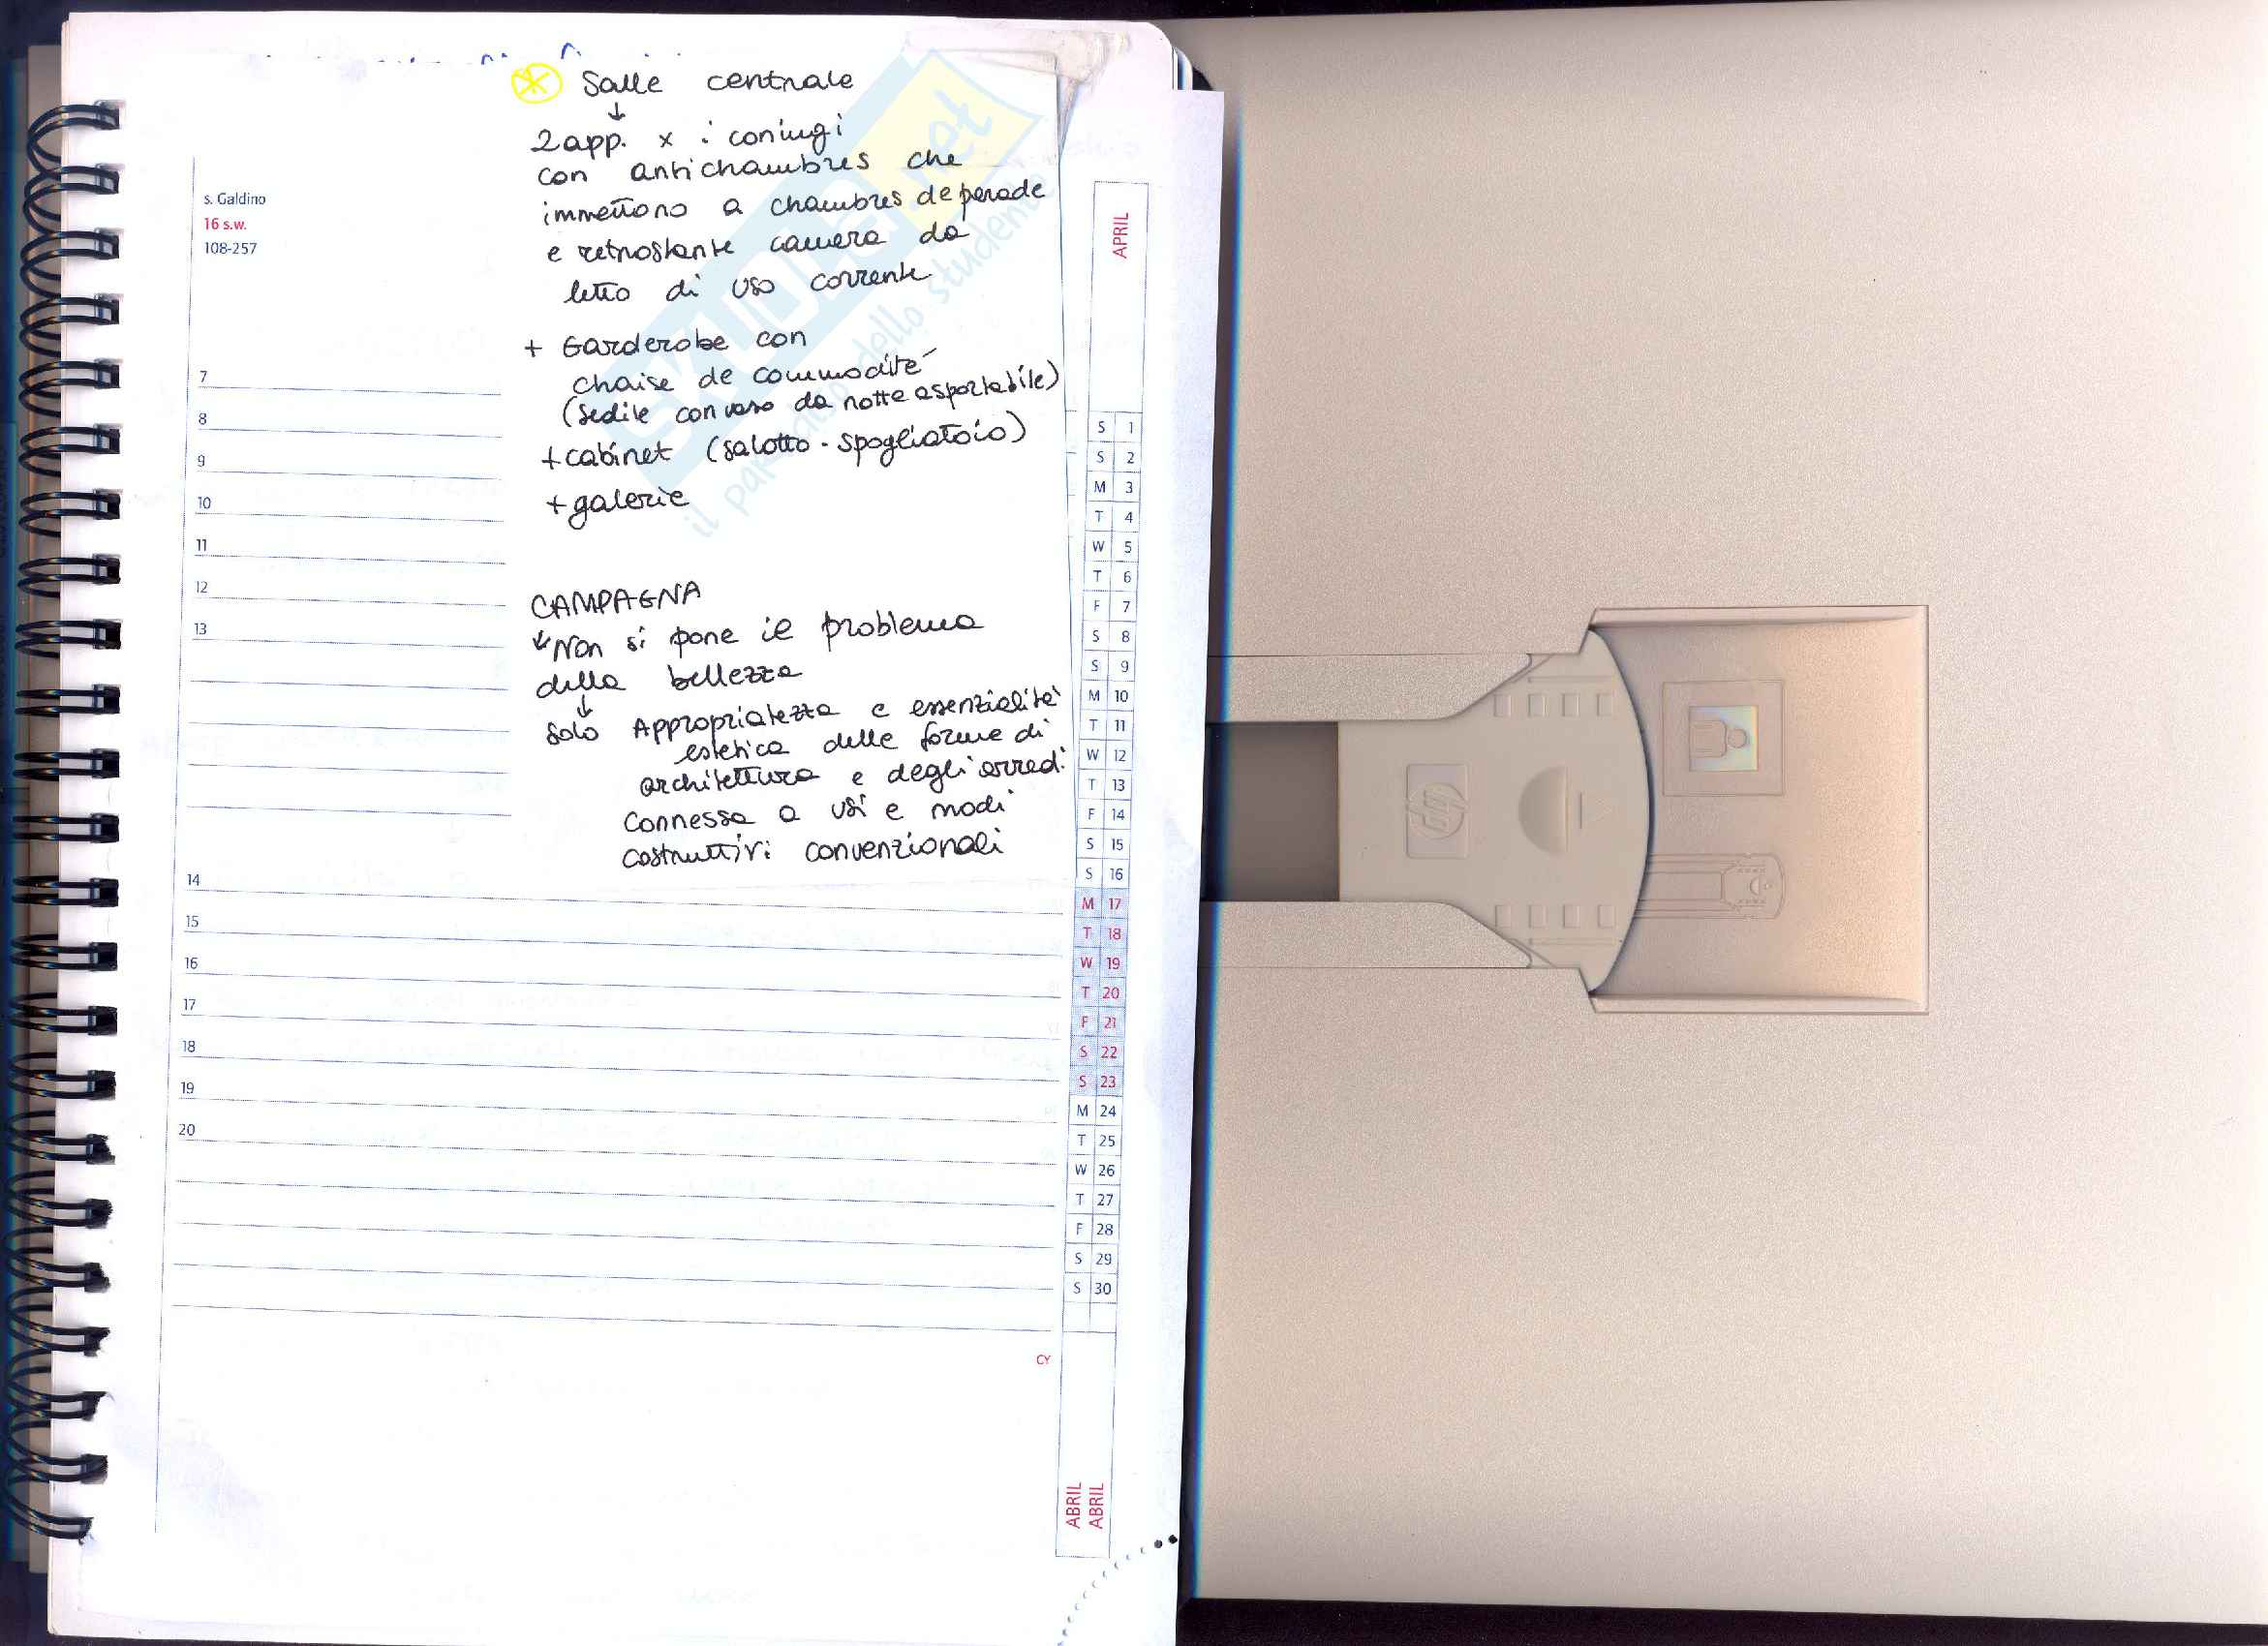 Salle centrale
↓
2 app. x i coniugi
con antichambres che
immettono a chambres de parade
e retrostante camera da
letto di uso corrente
+ Garderobe con
chaise de commodité
(sedile con vaso da notte asportabile)
+ cabinet (salotto - spogliatoio)
+ galerie
CAMPAGNA
↓ Non si pone il problema
della bellezza
↓
Solo Appropriatezza e essenzialità
estetica delle forme di
architettura e degli arredi
Connessa a usi e modi
costruttivi convenzionali
s. Galdino
16 s.w.
108-257
7
8
9
10
11
12
13
14
15
16
17
18
19
20
APRIL
S 1
S 2
M 3
T 4
W 5
T 6
F 7
S 8
S 9
M 10
T 11
W 12
T 13
F 14
S 15
S 16
M 17
T 18
W 19
T 20
F 21
S 22
S 23
M 24
T 25
W 26
T 27
F 28
S 29
S 30
CY
ABRIL
ABRIL
SKUOLA.net
il paradiso dello studente
hp